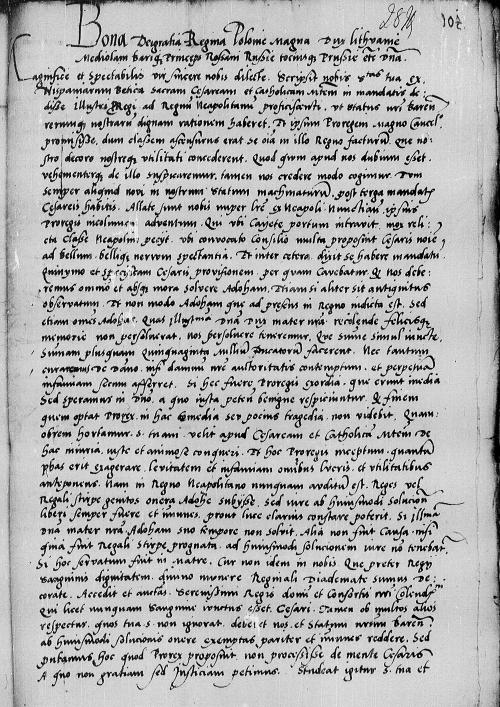 284 104
Bona Dei gratia Regina Polonie Magna Dux Lithuanie
Mediolani Bariq Princeps Rossani Russie totiusq Prussie etc Dna
Magnifice et spectabilis vir sincere nobis dilecte. Scripsit nobis tua ex
Hispaniarum Betica sacram Cesaream et Catholicam Mtem in mandatis de
disse Illustri Regi ad Regnū Neapolitanū proficiscenti, vt Status nri Baren
rerumq nostrarū dignam rationem haberet. Et ipsum Proregem Magno Cancel
promisisse, dum classem ascensurus erat se oīa in illo Regno facturū, que no
stro decoro nostreq vtilitati concederent. Quod qum apud nos dubium esset,
vehementerq de illo suspicaremur, tamen nos credere modo cogimur. Dum
semper aliquid novi in nostrum Statum machinaturū, post terga mandatis
Cesareis habitis. Allate sunt nobis nuper lre ex Neapoli nunctiantes ipsius
Proregis incolumem adventum. Qui vbi Cayete portum intravit, mox reli
cta Classe Neapolim petiit, vbi convocato Consilio multa proposuit Cesaris noīe
ad bellum, belliq nervum spectantia. Et inter cetera dixit se habere mandatū
Quinymo et specialem Cesaris provisionem, per quam Cavebatur, Qd nos debe
remus omnīo et absq mora solvere Adoham, Etiam si aliter sit antiquitus
observatum. Et non modo Adoham que ad presens in Regno indicta est, Sed
etiam omēs Adohas, Quas Illustrīma Dna Dux mater nra recolende felicisq
memorie non persolverat, nos persolvere teneremur, Que summe simul iuncte,
Sumam plusquam Quinquaginta Millium Ducatorum facerent. Nec tantum
curaremus de Dāno, nisi damnū nre auctoritatis contemptum, et perpetuā
infamiam secum afferret. Si hec fuere Proregis exordia, que erunt media
Sed speramus in Dno, a quo iusta petentes benigne respiciuntur, Qd finem
quem optat Prorex, in hac Comedia seu potius tragedia, non videbit. Quam
obrem hortamur S. tuam, velit apud Cesaream et Catholicā Mtem De
hac iniuria, iuste et animose conqueri. Et hoc Proregis inceptum, quantū
phas erit exagerare, levitatem et infamiam omibus lucris, et vtilitatibus
anteponens. Nam in Regno Neapolitano nunquam auditū est, Reges vel
Regali stirpe genitos onera Adohe subysse, Sed iure ab huiusmodi solucion
liberi semper fuere et immunes, prout luce clarius constare poterit. Si Illma
Dna mater nra Adoham suo tempore non solvit, Alia non fuit Causa, nisi
qīnā fuit Regali Stirpe prognata, ad huiusmodi solucionem iure nō tenebat
Si hoc servatum fuit in Matre, Cur non idem in nobis, Que preter Regij
Sanguinis dignitatem, divino munere Reginali Diademate sumus De
corate. Accedit et auctas Serenissimi Regis domi et Consortis nri Colendmi
Qui licet nunquam Sanguine iunctus esset Cesari, Tamen ob multos alios
respectus, quos tua S. non ignorat, deberet nos, et Statum nrum Baren
ab huiusmodi solucionis onere exemptas pariter et immunes reddere. Sed
putamus hoc quod Prorex proposuit, non processisse de mente Cesaris
A quo non gratiam sed Iusticiam petimus. Studeat igitur S. tua et